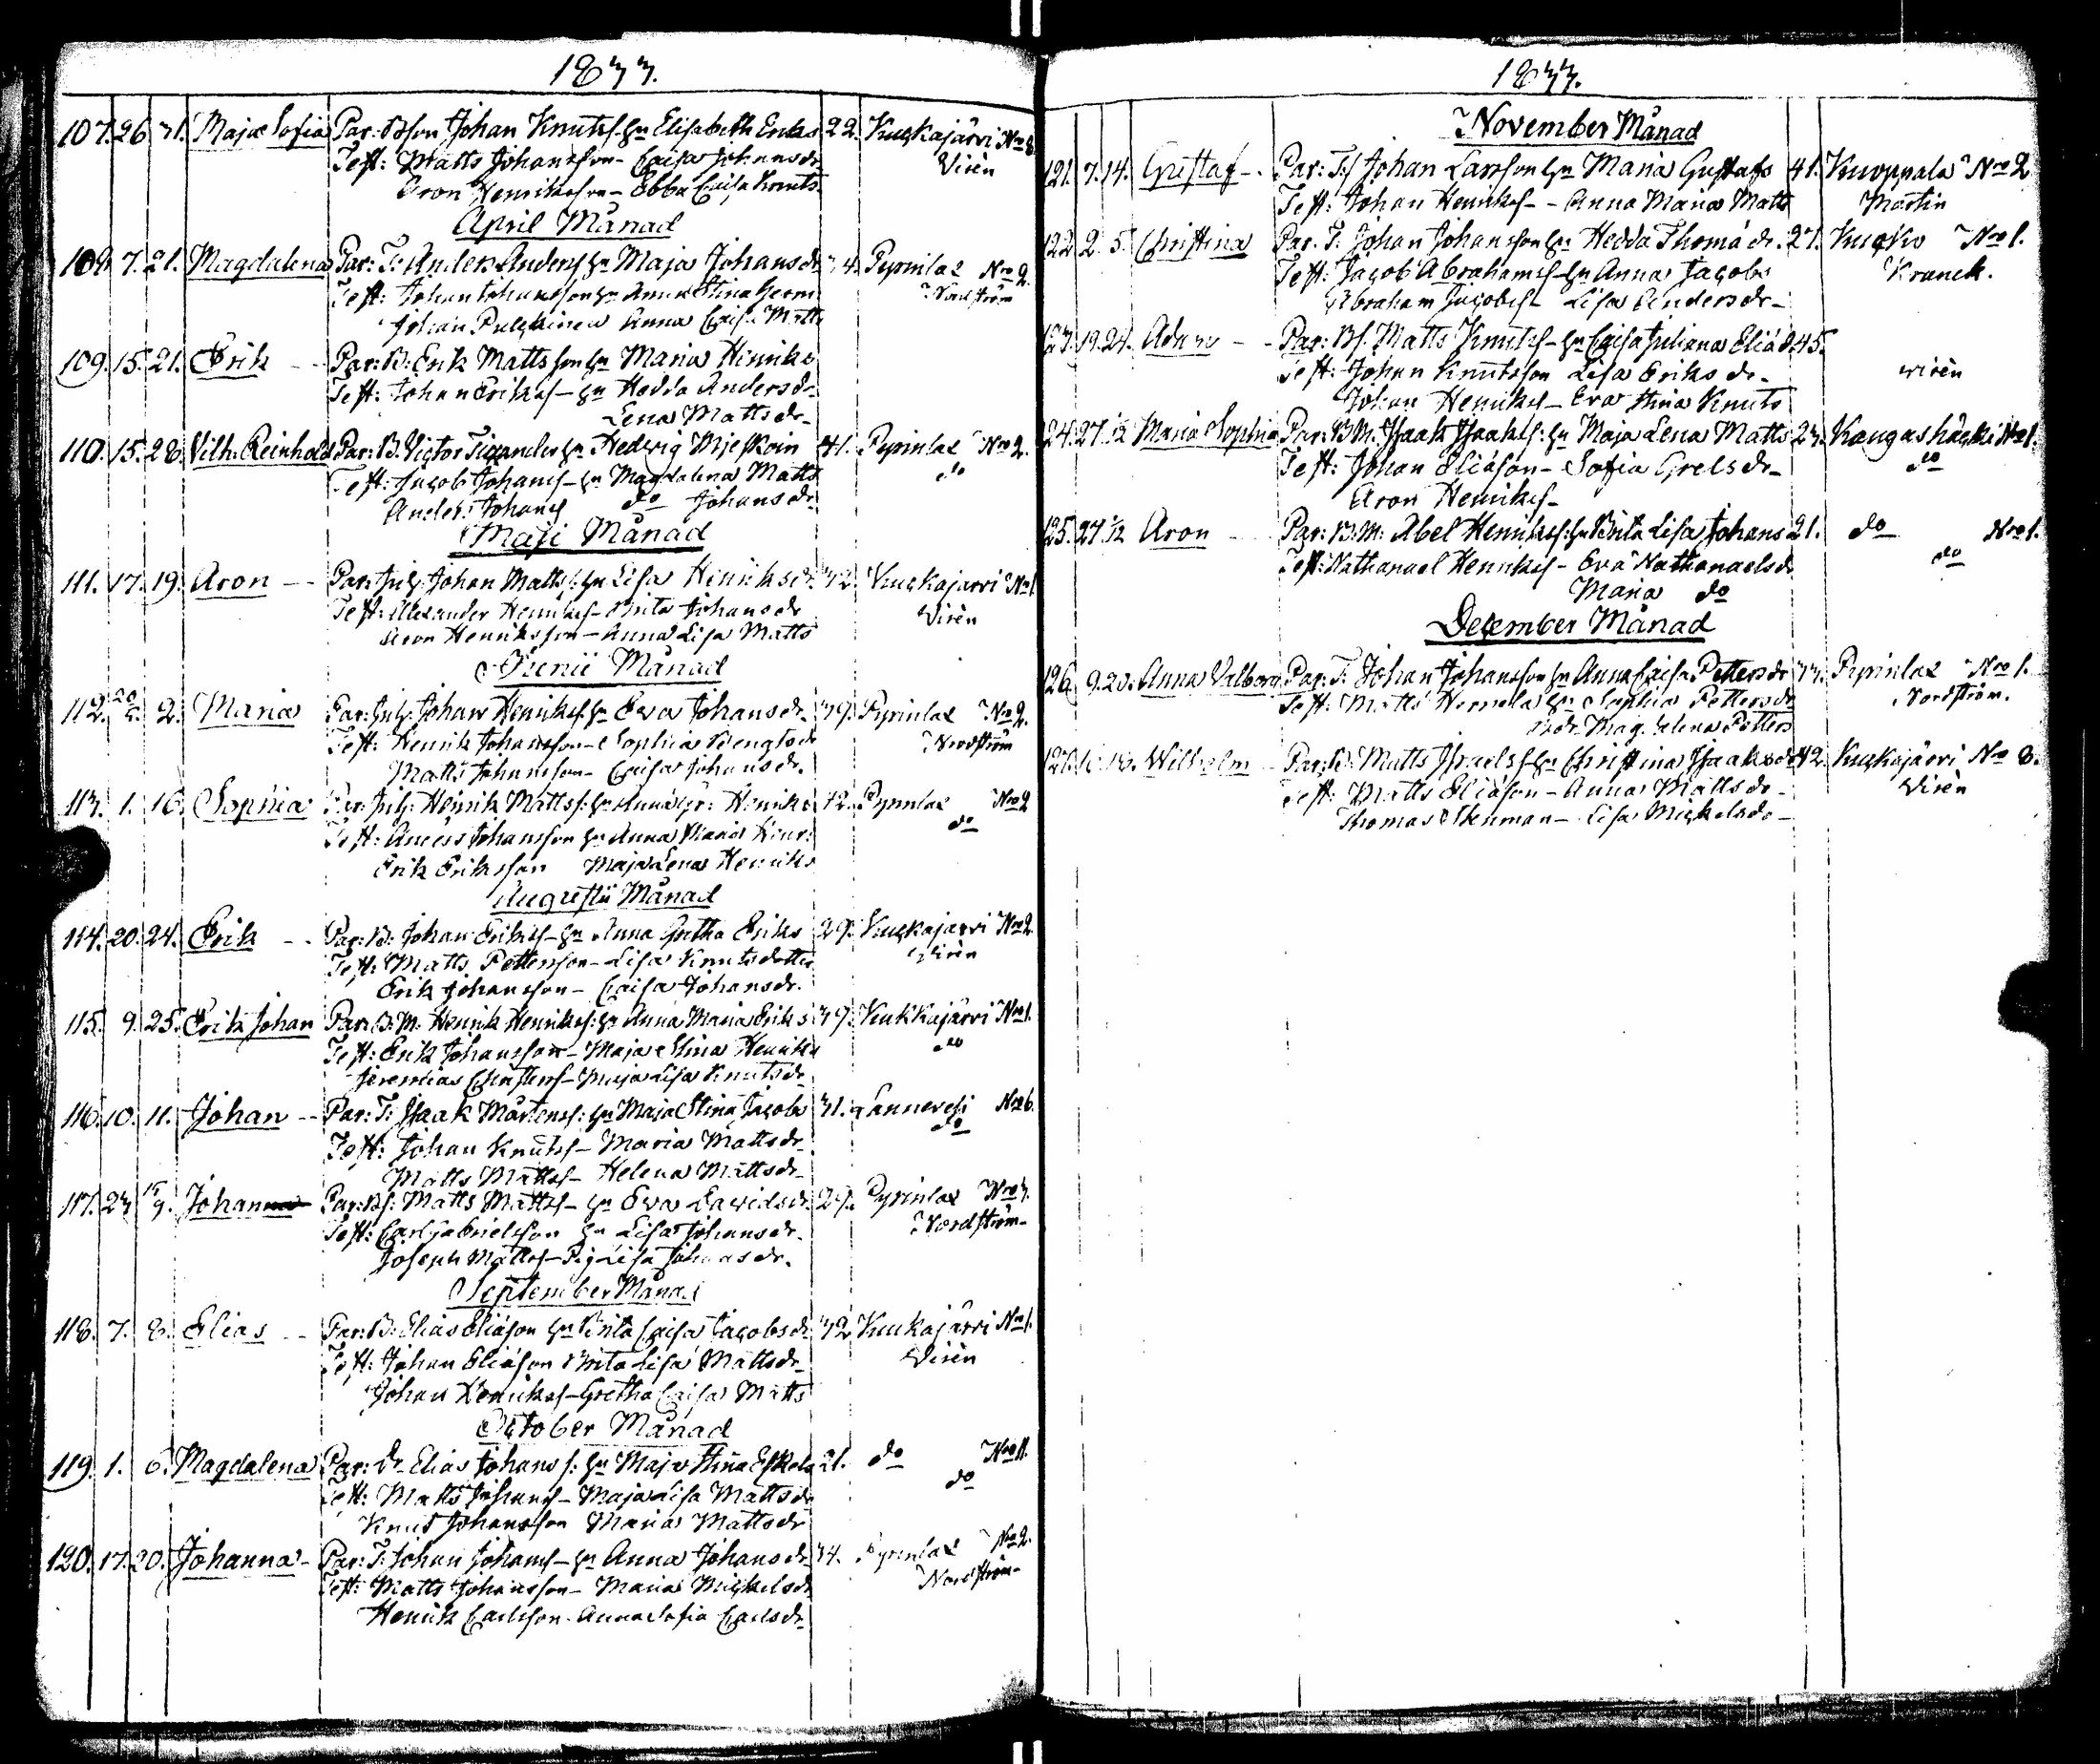 1833.
107. 26 31. Maja Sofia Par: Bson Johan Knutss. hu Elisabeth Eriks 22. Kuckajärvi No 8.
Test: Matts Johansson - Caisa Johansdr Virèn
Aron Henriksson - Ebba Caisa Knuts
April Månad
108. 7. 21. Magdalena Par: T: Anders Anderss hu Maja Johansdr 34. Pyrinlax No 2.
Test: Johan Johansson hu Anna Stina Nordström
Johan Anna Caisa Matts
109. 15. 21. Erik -- Par: B: Erik Mattsson hu Maria Henriks
Test: Johan Erikss - hu Hedda Andersdr
Lena Mattsdr -
110. 15. 28. Vilh. Reinhold Par: B. Victor hu Hedvig 41. Pyrinlax No 2.
Test: Jacob Johanss - hu Magdalena Matts do
Anders Johanss do Johansdr
Maji Månad
111. 17. 19. Aron -- Par: Johan Mattss: hu Lisa Henriksdr. 32. Kuckajärvi No 1.
Test: Alexander Henrikss - Brita Johansdr Virèn
Aron Henriksson - Anna Lisa Matts
Junii Månad
112. 2. Maria Par: Johan Henrikss. hu Eva Johansdr. 39. Pyrinlax No 2.
Test: Henrik Johansson - Sophia Bengtsdr Nordström
Matts Johansson - Caisa Johansdr.
113. 1. 16. Sophia Par: Henrik Mattss: hu Henriks 32. Pyrinlax No 2
Test: Anders Johansson hu Anna Maria Henr: do
Erik Eriksson Maja Lena Henriks
Augustii Månad
114. 20. 24. Erik -- Par: B: Johan Erikss - hu Anna Gretha Eriks 29. Kuckajarvi No 2
Test: Matts Pettersson - Lisa Knutsdotter Virèn
Erik Johansson - Caisa Johansdr.
115. 9. 25. Erik Johan Par: B. M. Henrik Henrikss: hu Anna Maria Eriks 39. Kukkajärvi No 1.
Test: Erik Johansson - Maja Stina Henriks do
Jeremias - Maja Lisa Knutsdr
116. 10. 11. Johan -- Par: T: Isaak Mårtenss: hu Maja Stina Jacobs 31. Lannevesi No 6.
Test: Johan Knutss - Maria Mattsdr - do
Matts Mattss - Helena Mattsdr -
117. 23 Johan Par: Bs: Matts Mattss - hu Eva Davidsdr. 29. Pyrinlax No 3.
Test: Carl Gabrielsson hu Lisa Johansdr. Nordström -
Joseph Mattss - Pig Lisa Johansdr.
September Månad
118. 7. 8. Elias -- Par: B: Elias Eliason hu Brita Caisa Jacobsdr 32 Kuckajärvi No 1.
Test: Johan Eliason Brita Lisa Mattsdr - Virèn
Johan Henrikss - Gretha Caisa Matts
October Månad
119. 1. 6. Magdalena Par: Dr Elias Johans s: hu Maja Stina Eskels 21. do No 11.
Test: Matts Johanss - Maja Lisa Mattsdr do
Knut Johansson Maria Mattsdr
120. 17. 20. Johanna - Par: T: Johan Johanss - hu Anna Johansdr - 34. Pyrinlax No 2.
Test: Matts Johansson - Maria Mickelsdr Nordström -
Henrik Carlsson - Anna Sofia Carlsdr
1833.
November Månad
121. 7. 14. Gustaf -- Par: Ts Johan Larsson hu Maria Gustafs 41. Kuoppala No 2
Test: Johan Henrikss - - Anna Maria Matts Martin
122 2. 5. Christina Par: T: Johan Johansson hu Hedda Thomádr. 27. Kucko No 1.
Test: Jacob Abrahamss - hu Anna Jacobs Kranck.
Abraham Jacobss - Lisa Andersdr -
123. 19. 24. Adam -- Par: Bs. Matts Knutss - hu Caisa Juliana Eliád. 45.
Test: Johan Knutsson Lisa Eriksdr - Virèn
Johan Henrikss - Eva Stina Knuts
124. 27. 1/12 Maria Sophia Par: B. M. Isaak Isaakss: hu Maja Lena Matts 23. Kangashäcki No 1.
Test: Johan Eliáson - Sofia Grelsdr - do
Aron Henrikss -
125. 27 1/12 Aron - Par: B: M: Abel Henrikss: hu Brita Lisa Johans 21. do No 1.
Test: Nathanael Henrikss - Eva Nathanaelsdr do
Maria do
December Månad
126. 9. 20. Anna Valborg Par: T. Johan Johansson hu Anna Caisa Pettersdr 33. Pyrinlax No 1.
Test: Matts hu Sophia Pettersdr Nordström.
Bdr. Magdalena Petters
Wilhelm Par: B: Matts Israelss hu Christina Isaaksdr 42. Kuckajärvi No 8.
Test: Matts Eliáson - Anna Mattsdr - Virèn
Thomas Stenman - Lisa Mickelsdr -